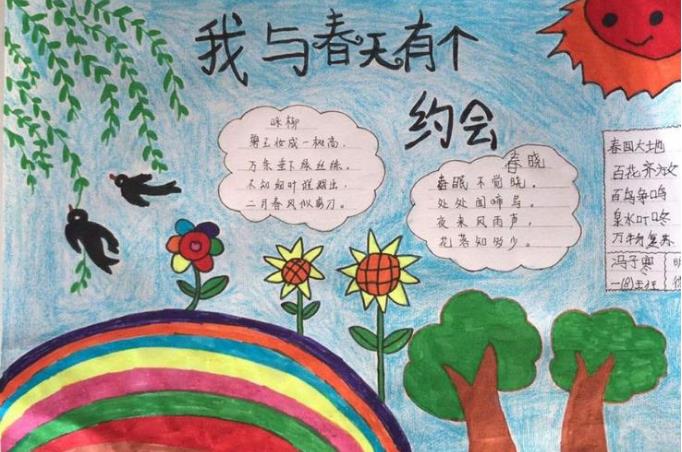 我与春天有个
约会
咏柳
碧玉妆成一树高，
万条垂下绿丝绦。
不知细叶谁裁出，
二月春风似剪刀。
春晓
春眠不觉晓。
处处闻啼鸟。
夜来风雨声，
花落知多少。
春回大地
百花齐放
百鸟争鸣
泉水叮咚
万物复苏
冯子寒